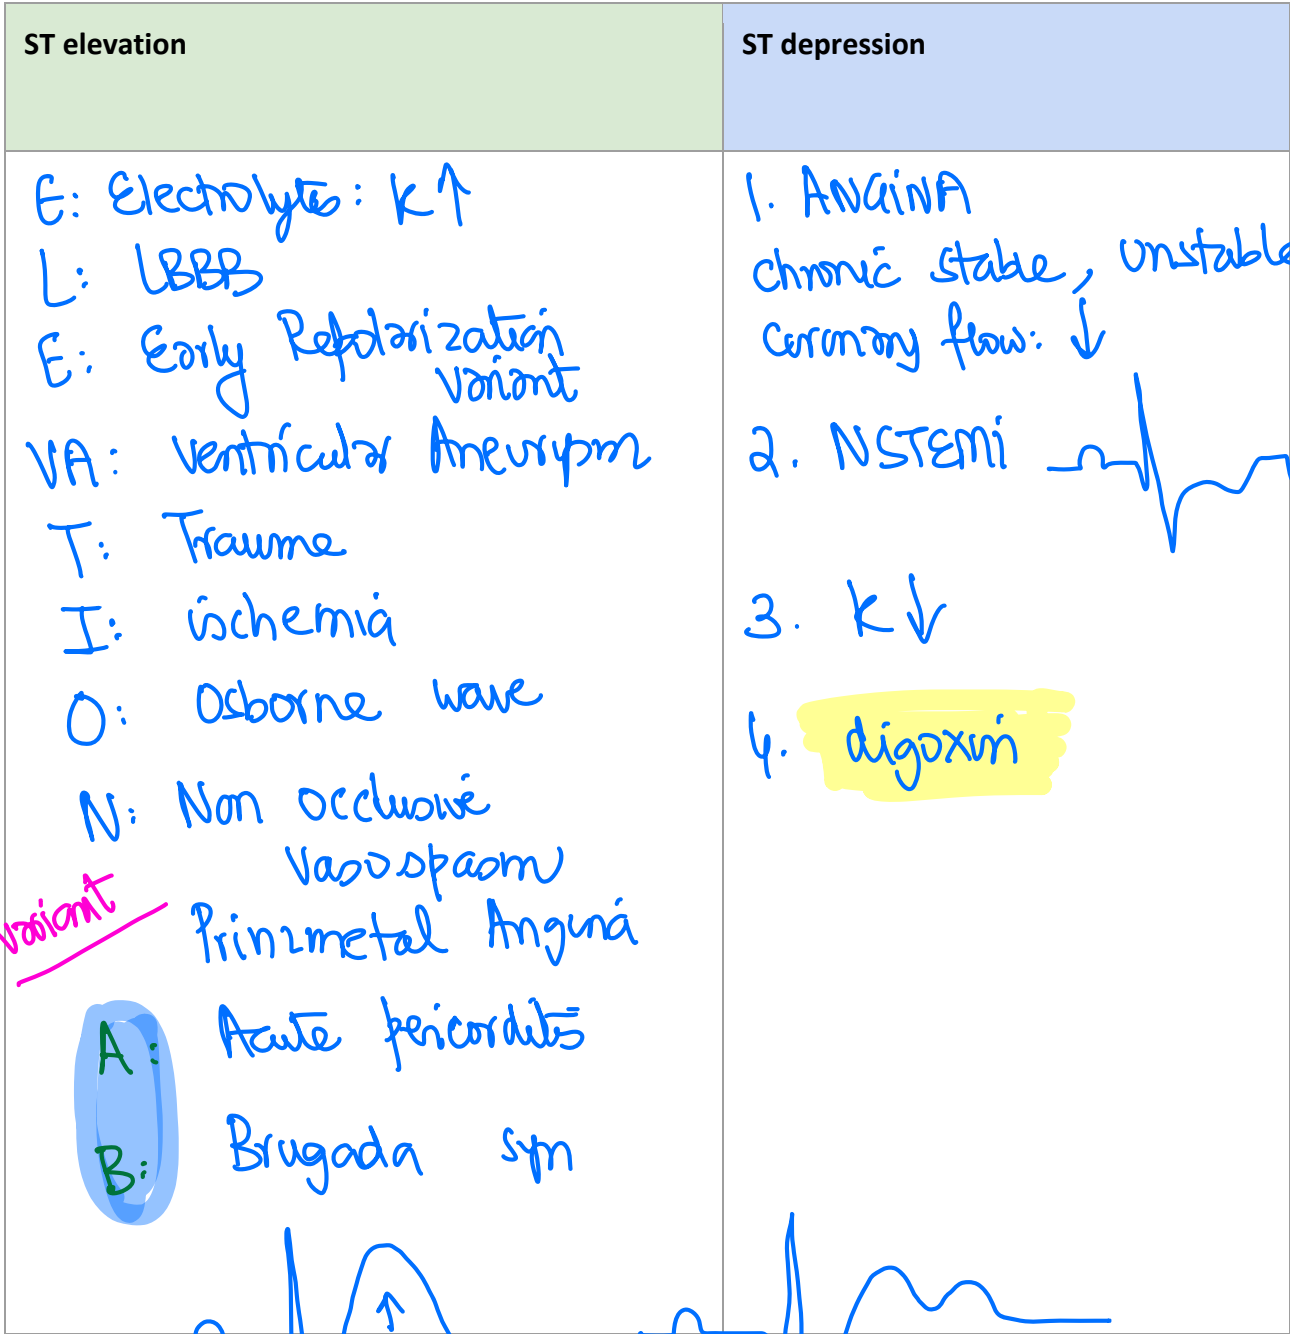 ST elevation
E: Electrolytes: K ↑
L: LBBB
E: Early Repolarization
variant
VA: Ventricular Aneurysm
T: Traume
I: ischemia
O: Osborne wave
N: Non occlusive
Vasospasm
variant
Prinzmetal Angina
A: Acute pericarditis
B: Brugada syn
↑
ST depression
1. ANGINA
chronic stable, unstable
Coronary flow: ↓
2. NSTEMI
3. K ↓
4. digoxin